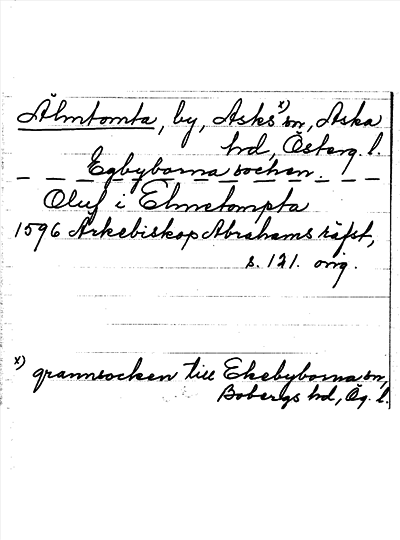 Älmtomta, by, Asks x) sn, Aska
hd, Österg. l.
Egbyborna sochen.
Oluf i Elmetompta
1596 Ärkebiskop Abrahams räfst,
s. 121. orig.
x) grannsocken till Ekebyborna sn,
Bobergs hd, Ög. l.